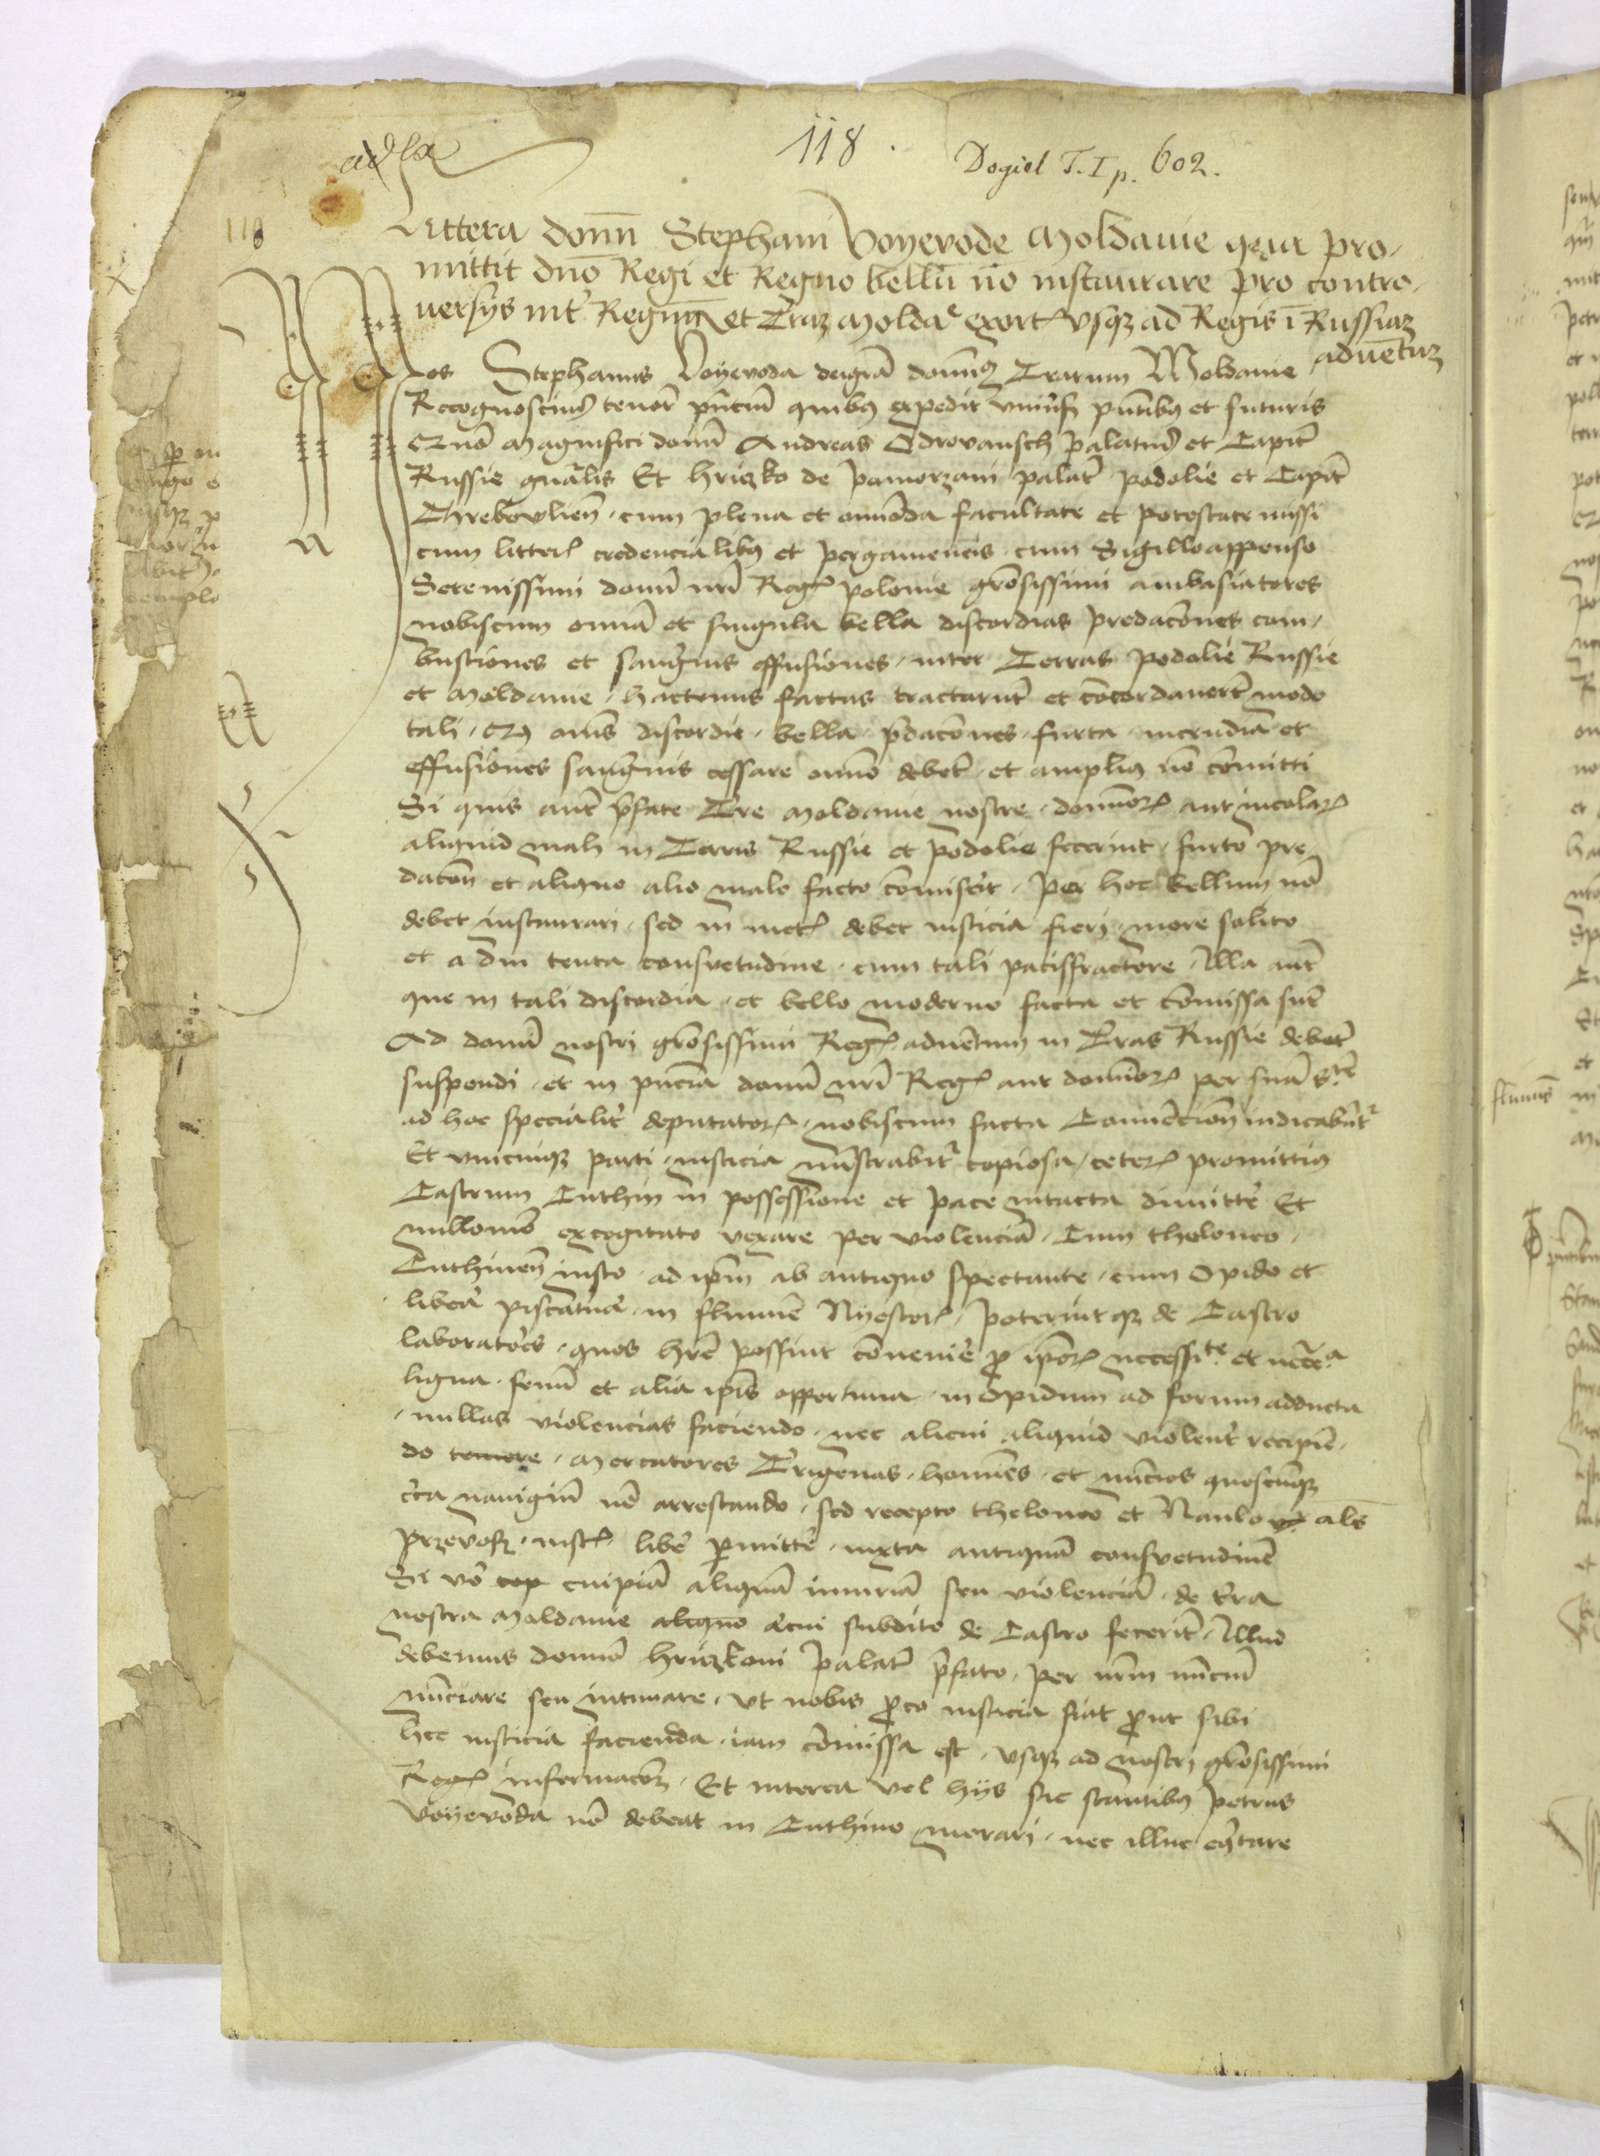 118
Dogiel T. I p. 602.
118
Littera domi Stephani Voyevode Moldavie quia pro-
mittit dno Regi et Regno bellu no instaurare pro contro-
versys int Regnum et Traz Moldae exort usqz ad Regis i Russiaz
adventuz
Nos Stephanus Voyevoda dei gra domin9 Trarum Moldavie
Recognoscim9 tenor pntiu quib9 expedit univsis pntib9 et futuris
Quo Magnifici domi Andreas Odrovansch palatin9 et Capit
Russie gnalis Et Hriczko de pamorzani palat podolie et Capit
Threbovlien cum plena et omioda facultate et potestate missi
cum litter credencialib9 et pergamencis cum Sigillo appenso
Serenissimi domi nri Reg polonie gro­sissimi ambasiatores
nobiscum omia et singula bella discordias predacoes com-
bustiones et sangwis effusiones inter Terras podolie Russie
et Moldavie hactenus factas tractarut et cocordavert modo
tali Q9 omis discordie bella pdacoes furta incendia et
effusiones sangwis cessare omio debet et ampli9 no comitti
Si quis aut pfate Tre Moldavie nostre dominor aut incolar
aliquid mali in Terris Russie et podolie fecerint furto pre
dacon et aliquo alio malo facto comiserit per hoc bellum no
debet instaurari sed in met debet iusticia fieri more solito
et a diu tenta consvetudine cum tali pacisfractore Illa aut
que in tali discordia et bello moderno facta et comissa sut
Ad domi nostri grosissimi Reg adventum in Tras Russie debet
suspendi et in pncia domi nri Reg aut dominor per sua Ste
ad hoc specialit deputator nobiscum facta Convencion iudicabut
Et unicuiqz parti iusticia mistrabit copiosa ceter promittim9
Castrum Cuthin in possessione et pace intacta dimitte Et
nullomo excogitato vexare per violencia Cum theloneo
Cuthinen iusto ad ipm ab antiquo spectante cum Opido et
libera piscatura in flumie Nyestor poterintqz de Castro
laboratores quos hre possint coveniē p ipor necessite et necca
ligna fenu et alia ipis opportuna in Opidum ad forum adducta
nullas violencias faciendo nec alicui aliquid violent recipie-
do temere Mercatores Trigenas homies et nuncios quoscuqz
cca navigiu no arrestando sed recepto theloneo et Naulo als
przevosz iust libe pmitte iuxta antiqua consvetudine
Si vo cuipia aliqua iniuria seu violencia de tra
nostra Moldavie aliquo alicui subdito de Castro fecerit Illud
debemus domio Hriczkoni palat pfato per nrm nunciu
nunciare seu intimare ut nobis p eo iusticia fiat put sibi
hec iusticia facienda iam comissa est usqz ad nostri grosissimi
Reg informacoz Et interea vel hys sic stantib9 petrus
Voyevoda no debeat in Cuthino morari nec illuc